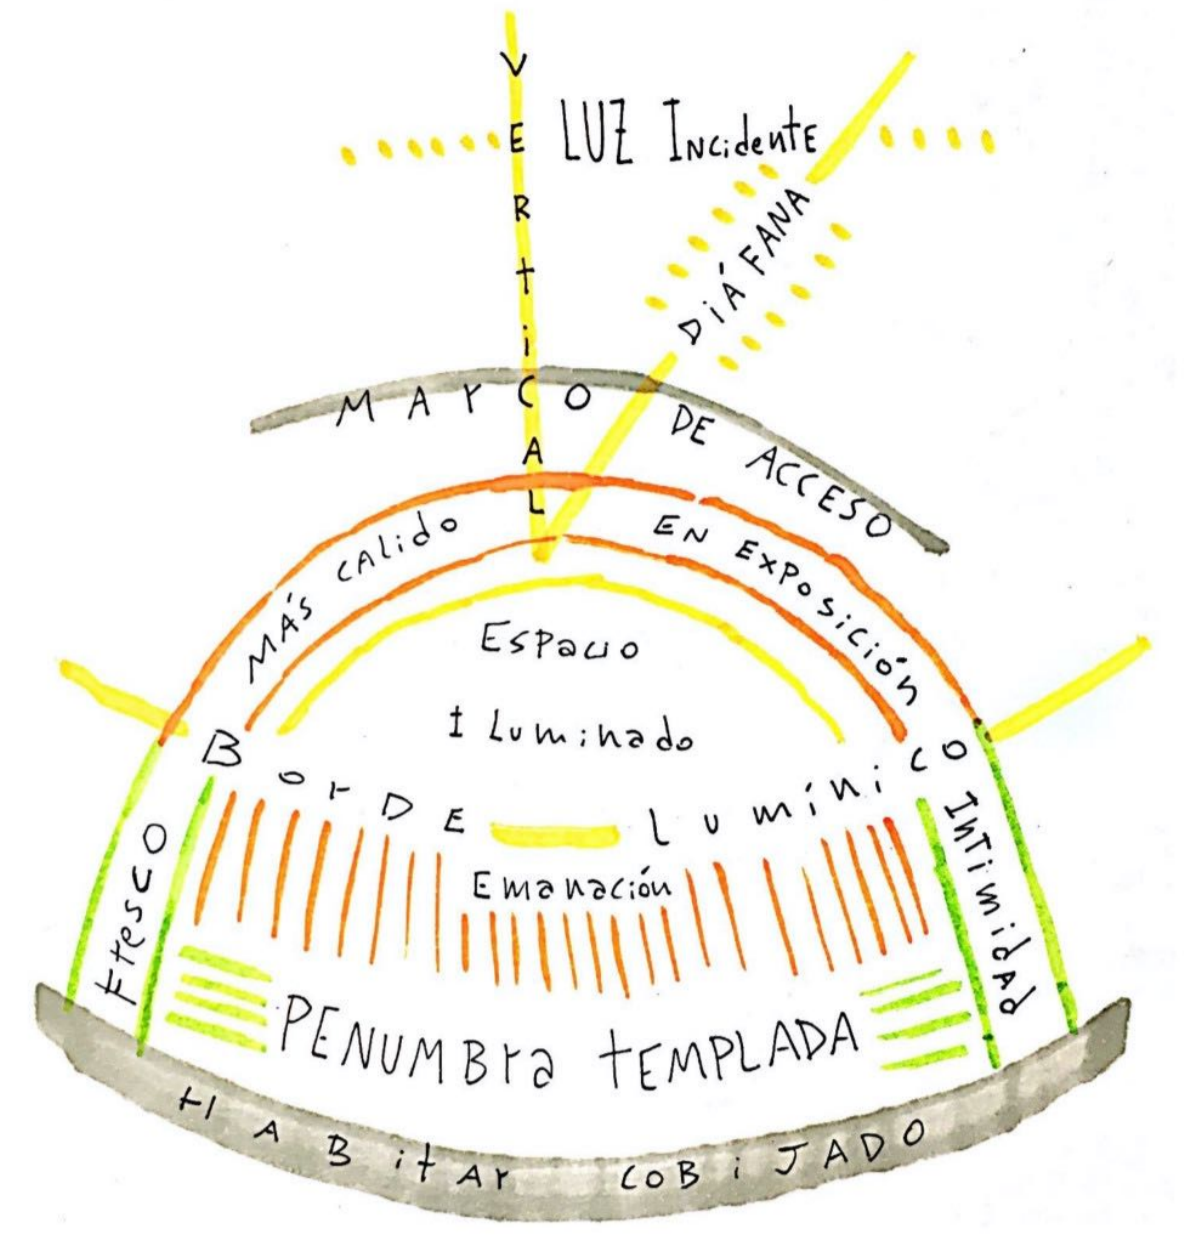 VERTiCAL
LUZ INCidentE
DiÁFANA
MArCO DE ACCESO
MÁS CALido
EN EXPOSiCión
ESPacio
ILuminado
BorDE Lumínico
Emanación
FrEsco
INTimidAd
PENUMBra tEMPLADA
HABitAr COBiJADO